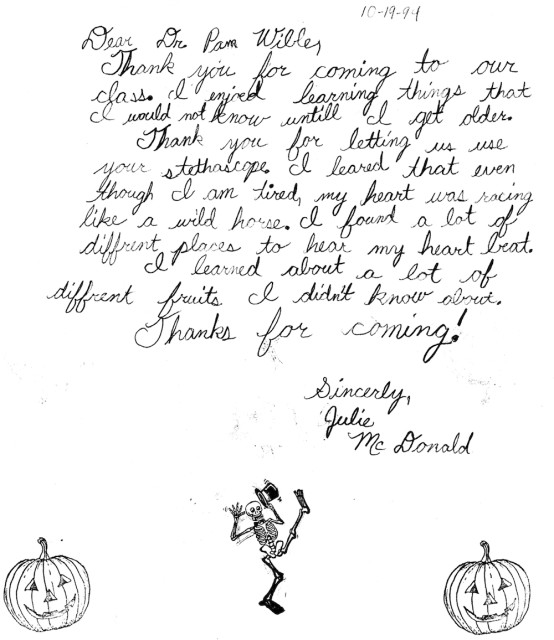 10-19-94
Dear Dr. Pam Wible,
Thank you for coming to our
class. I enjoed learning things that
I would not know untill I get older.
Thank you for letting us use
your stethascope. I leared that even
though I am tired, my heart was racing
like a wild horse. I found a lot of
diffrent places to hear my heart beat.
I learned about a lot of
diffrent fruits I didn't know about.
Thanks for coming!
Sincerly,
Julie
Mc Donald